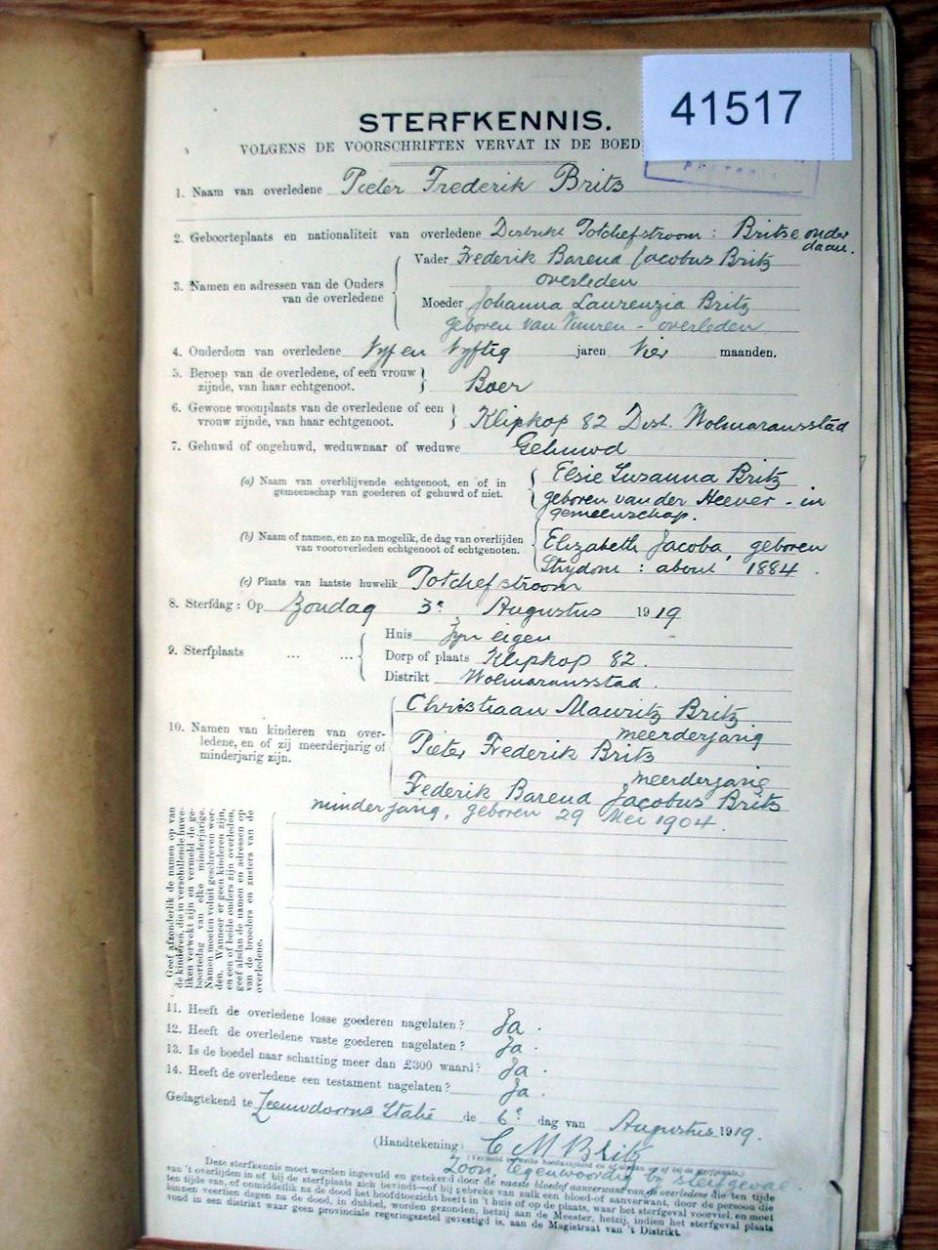 41517
STERFKENNIS.
VOLGENS DE VOORSCHRIFTEN VERVAT IN DE BOED
1. Naam van overledene Pieter Frederik Brits
2. Geboorteplaats en nationaliteit van overledene Distrikt Potchefstroom: Britse onder
daan.
3. Namen en adressen van de Ouders
van de overledene
Vader Frederik Barend Jacobus Britz
overleden
Moeder Johanna Laurenzia Britz
geboren van Vuuren - overleden
4. Onderdom van overledene Vyf en Vyftig jaren Vier maanden.
5. Beroep van de overledene, of een vrouw
zijnde, van haar echtgenoot.
Boer
6. Gewone woonplaats van de overledene of een
vrouw zijnde, van haar echtgenoot.
Klipkop 82 Dist. Wolmaransstad
7. Gehuwd of ongehuwd, weduwnaar of weduwe Gehuwd
(a) Naam van overblijvende echtgenoot, en of in
gemeenschap van goederen of gehuwd of niet.
Elsie Susanna Britz
geboren van der Heever - in
gemeenschap.
(b) Naam of namen, en zo na mogelik, de dag van overlijden
van vooroverleden echtgenoot of echtgenoten.
Elizabeth Jacoba, geboren
Strydom : about 1884.
(c) Plaats van laatste huwelik Potchefstroom
8. Sterfdag: Op Zondag 3e Augustus 1919
9. Sterfplaats ... ...
Huis Zyn eigen
Dorp of plaats Klipkop 82.
Distrikt Wolmaransstad.
10. Namen van kinderen van over-
ledene, en of zij meerderjarig of
minderjarig zijn.
Christiaan Mauritz Britz
meerderjarig
Pieter Frederik Britz
meerderjarig
Federik Barend Jacobus Britz
minderjarig, geboren 29 Mei 1904.
Geef afzonderlik de namen op van
de kinderen, die in verschillende huwe-
liken verwekt zijn en vermeld de ge-
boortedag van elke minderjarige.
Namen moeten voluit geschreven wor-
den. Wanneer er geen kinderen zijn,
en een of beide ouders zijn overleden,
geef alsdan de namen en adressen op
van de broeders en zusters van de
overledene.
11. Heeft de overledene losse goederen nagelaten? Ja.
12. Heeft de overledene vaste goederen nagelaten? Ja.
13. Is de boedel naar schatting meer dan £300 waard? Ja.
14. Heeft de overledene een testament nagelaten? Ja.
Gedagtekend te Leeuwdoorns Statie de 6e dag van Augustus 1919.
(Handtekening) C M Britz
Zoon, tegenwoordig by sterfgeval
Deze sterfkennis moet worden ingevuld en getekend door de naaste bloedof aanverwant van de overledene die ten tijde
van 't overlijden in of bij de sterfplaats zich bevindt—of bij gebreke van zulk een bloed-of aanverwant, door de persoon die
ten tijde van, of onmiddellik na de dood het hoofdtoezicht heeft in 't huis of op de plaats, waar het sterfgeval voorviel, en moet
binnen veertien dagen na de dood, in dubbel, worden gezonden, hetzij aan de Meester, hetzij, indien het sterfgeval plaats
vond in een distrikt waar geen provinciale regeringszetel gevestigd is, aan de Magistraat van 't Distrikt.